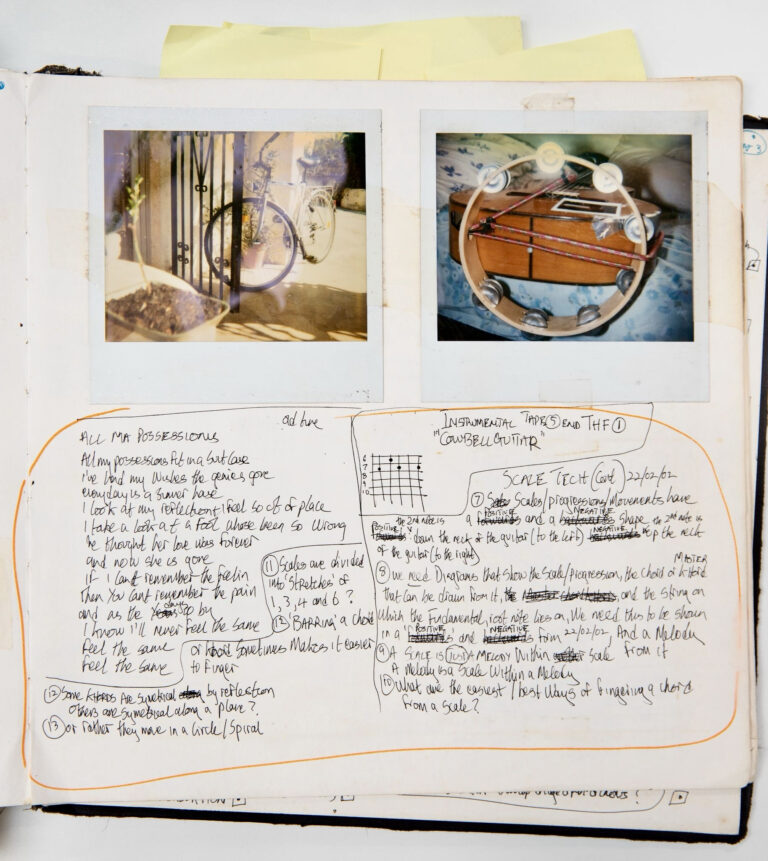 ALL MA POSSESSIONS
old tune
All my possessions fit in a suitcase
I've had my wishes the genies gone
everyday is a
I look at my reflection I feel so out of place
I take a look at a fool whose been so wrong
he thought her love was forever
and now she is gone
if I can't remember the feelin
then you cant remember the pain
and as the days go by
I know i'll never feel the same
feel the same
feel the same
(11) Scales are divided
into stretches of
1, 3, 4 and 6?
(12) 'BARRING' a chord
or khord sometimes makes it easier
to finger
(12) Some KHORDS are symetrical by reflection
others are symetrical along a plane?
(13) or rather they move in a circle/Spiral
INSTRUMENTAL TAPE (5) END THF (1)
"COWBELL GUITAR"
6
7
8
9
10
SCALE TECH (Cont.) 22/02/02
(7) Scales/progressions/Movements have
a POSITIVE and a NEGATIVE shape the 2nd note is
the 2nd note is
POSITIVE down the neck of the guitar (to the left) NEGATIVE up the neck
of the guitar (to the right)
(8) We need Diagrams that show the scale/progression, the chord or khord
MASTER
that can be drawn from it, the and the string on
which the fundamental, root note lies on, We need this to be shown
in a POSITIVE and NEGATIVE form 22/02/02, And a Melody
from it
(9) A SCALE IS JUST A MELODY Within scale
A Melody is a Scale Within a Melody
(10) What are the easiest/best ways of fingering a chord
from a scale?